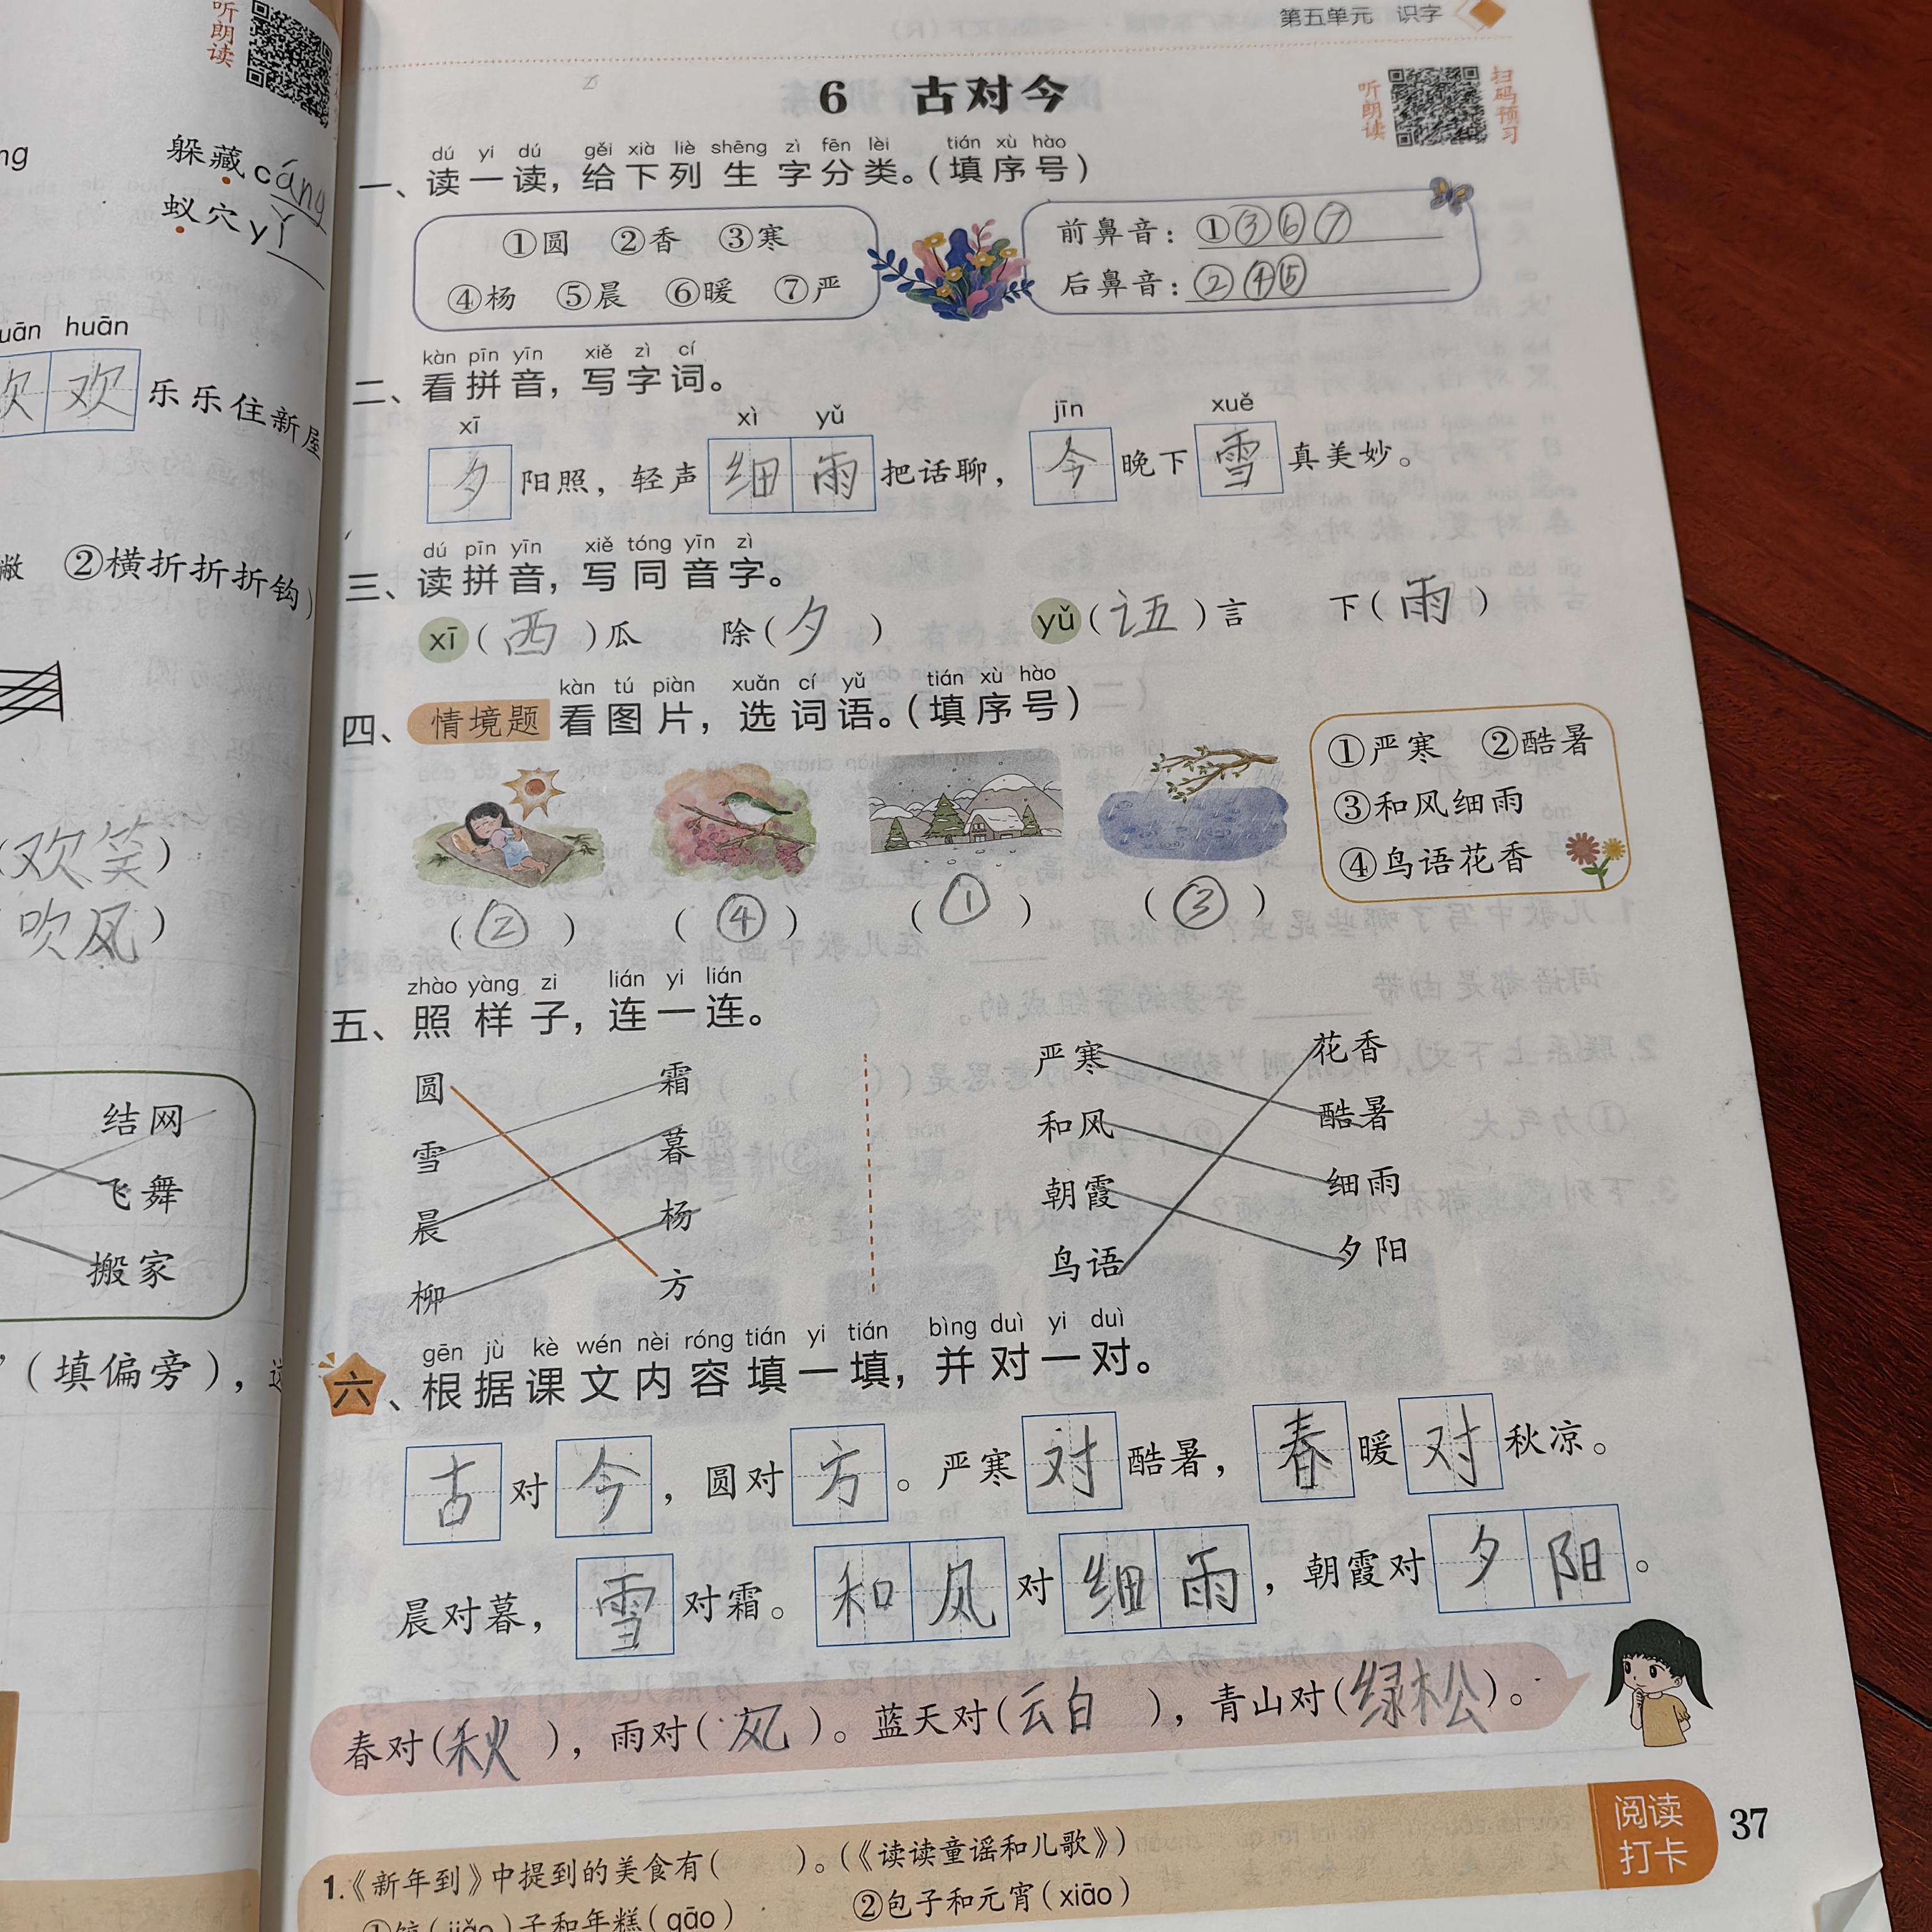 听朗读
ng
躲藏cáng
蚁穴yǐ
uān huān
欢 欢 乐乐住新屋
撇 ②横折折折钩)
(欢笑)
吹风)
结网
飞舞
搬家
(填偏旁),
第五单元 识字
6 古对今
听朗读
扫码预习
dú yi dú gěi xià liè shēng zì fēn lèi tián xù hào
一、读一读,给下列生字分类。(填序号)
①圆 ②香 ③寒
④杨 ⑤晨 ⑥暖 ⑦严
前鼻音:①③⑥⑦
后鼻音:②④⑤
kàn pīn yīn xiě zì cí
二、看拼音,写字词。
xī xì yǔ jīn xuě
夕阳照,轻声细雨把话聊,今晚下雪真美妙。
dú pīn yīn xiě tóng yīn zì
三、读拼音,写同音字。
xī(西)瓜 除(夕) yǔ(语)言 下(雨)
kàn tú piàn xuǎn cí yǔ tián xù hào
四、情境题 看图片,选词语。(填序号)
①严寒 ②酷暑
③和风细雨
④鸟语花香
(②) (④) (①) (③)
zhào yàng zi lián yi lián
五、照样子,连一连。
圆 霜 严寒 花香
雪 暮 和风 酷暑
晨 杨 朝霞 细雨
柳 方 鸟语 夕阳
gēn jù kè wén nèi róng tián yi tián bìng duì yi duì
六、根据课文内容填一填,并对一对。
古对今,圆对方。严寒对酷暑,春暖对秋凉。
晨对暮,雪对霜。和风对细雨,朝霞对夕阳。
春对(秋),雨对(风)。蓝天对(云白),青山对(绿松)。
阅读打卡
37
1.《新年到》中提到的美食有( )。(《读读童谣和儿歌》)
①饺(jiǎo)子和年糕(gāo) ②包子和元宵(xiāo)